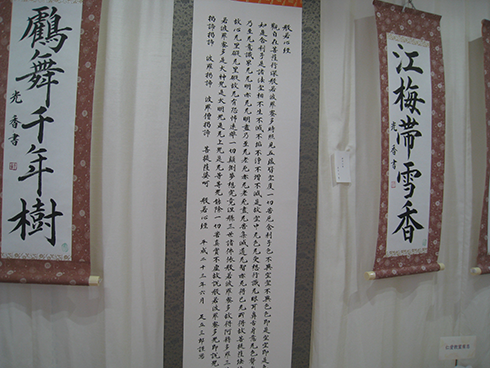 江梅帯雪香
光香書
般若心経
観自在菩薩行深般若波羅蜜多時照見五蘊皆空度一切苦厄舎利子色不異空空不異色色即是空空即是
如是舎利子是諸法空相不生不滅不垢不浄不増不減是故空中无色无受想行識无眼耳鼻舌身意无色声
乃至无意識界无无明亦无无明盡乃至无老死亦无老死盡无苦集滅道无智亦无得以无所得故菩提薩埵
故心无罣礙无罣礙故无有恐怖遠離一切顛倒夢想究竟涅槃三世諸仏依般若波羅蜜多故得阿耨多羅三
若波羅蜜多是大神呪是大明呪是无上呪是无等等呪能除一切苦真実不虚故説般若波羅蜜多呪即説呪
羯諦羯諦 波羅羯諦 波羅僧羯諦 菩提薩婆呵 般若心経 平成二十三年六月
鶴舞千年樹
光香書